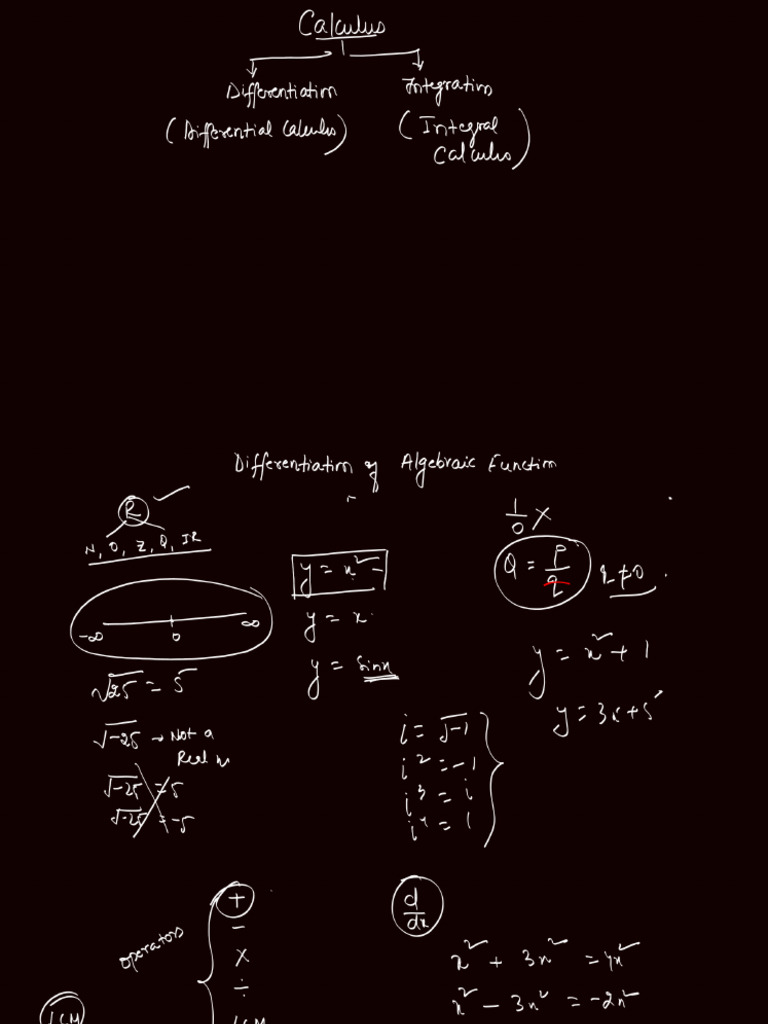 Calculus
Differentiation Integration
(Differential Calculus) (Integral
Calculus)
Differentiation of Algebraic Function
R
N, O, Z, Q, IR
-∞ 0 ∞
√25 = 5
√-25 → Not a
Real n
√-25 = 5
√-25 = -5
y = x² -
y = x
y = sinx
1/0 X
Q = p/q q ≠ 0
y = x² + 1
y = 3x + 5
i = √-1
i² = -1
i³ = i
i⁴ = 1
operators
+
-
x
÷
LCM
LCM
d/dx
x² + 3x² = 4x²
x² - 3x² = -2x²